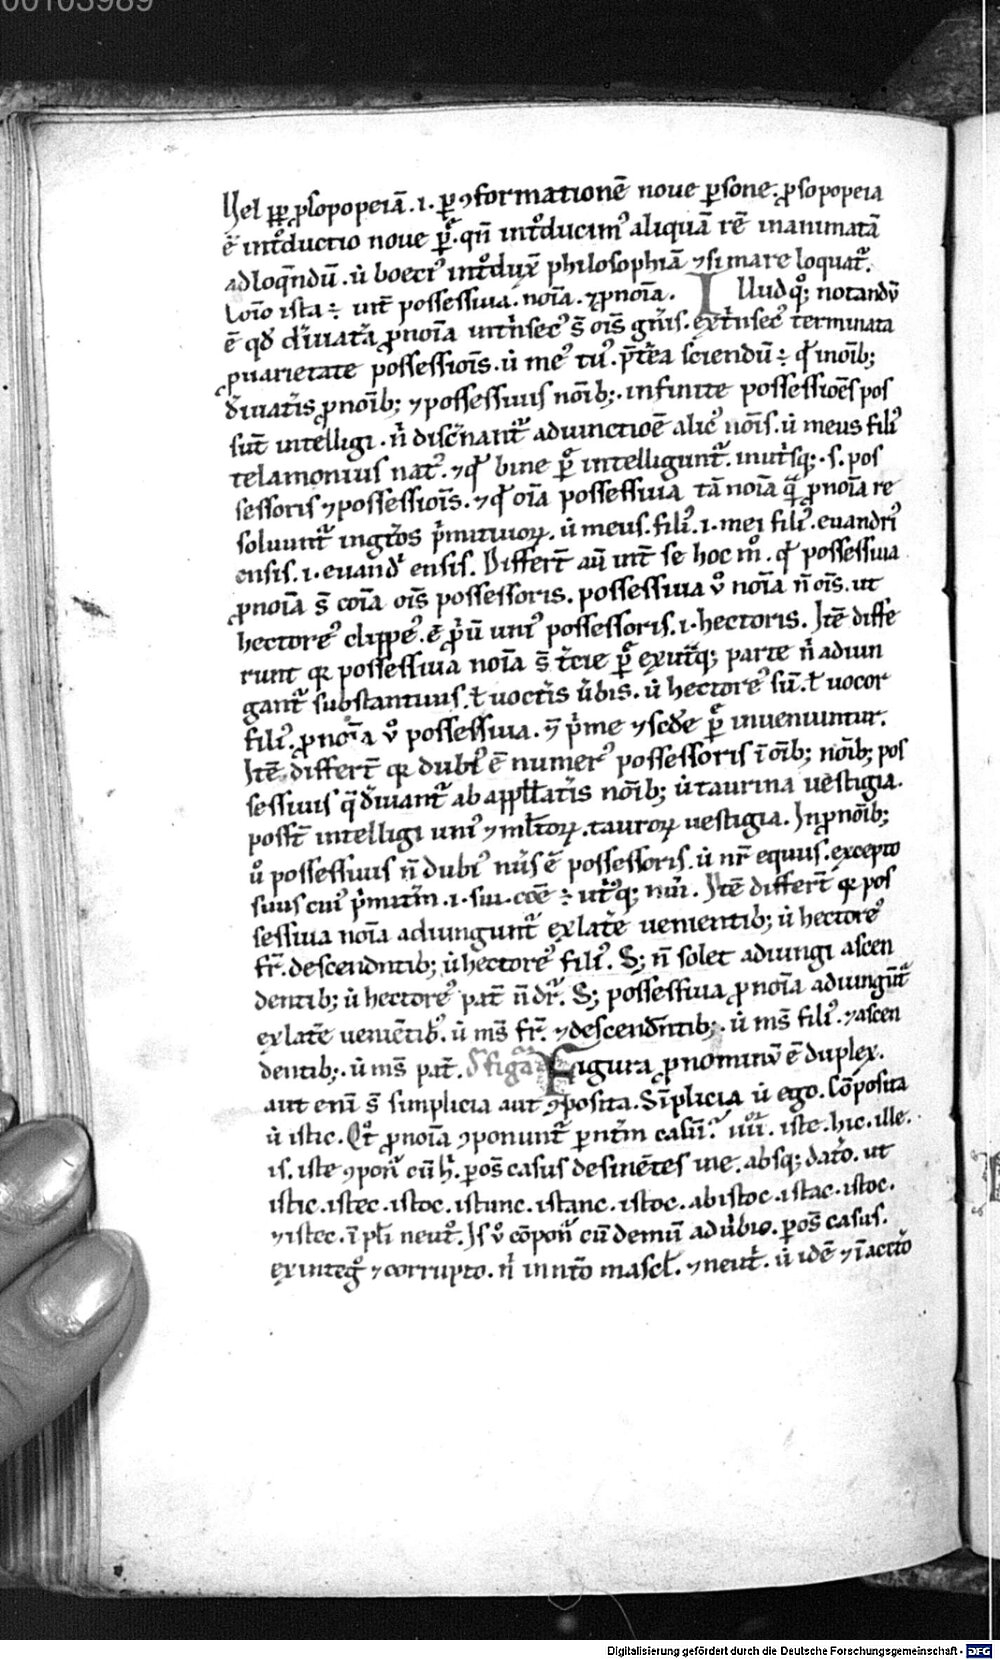 00103989
Vel ꝑp̱ ꝓsopopeiā .i. ꝑ ꝯformationē noue ꝑsone. ꝓsopopeia
ē int̊ductio noue ꝑ. qn̄ int̊ducim᷒ aliquā rē inanimatā
ad loq̄ndū. u̇ boeci᷒ int̊duxͭ philosophiā ⁊ si mare loquat᷑.
ista ÷ int̄ possessiua. noīa. ⁊ ꝓnoīa. Illud q̊; notandū
ē qd̵ diͥuata ꝓnoīa int̍nsec᷒ s̄ oīs gn̄is. ext̍nsec᷒ terminata
ꝓ uarietate possessiōis. u̇ me᷒ tu᷒. p̄t̄ea sciendū ÷ qd̵ inoīb;
diͥuatis ꝓnoīb; ⁊ possessiuis noīb;. infinite possessiōes pos
sūt intelligi. n̍ discͥnant᷑ adiunctiōe alic᷒ noīs. u̇ meus fili᷒
telamonius nat᷒. ⁊ qd̵ bine ꝑ intelligunt᷑. in ut̍sq;. s. pos
sessoris ⁊ possessiōis. ⁊ qd̵ oīa possessiua tā noīa qͣ ꝓnoīa re
soluunt᷑ in gͭos pͥmitiuoꝝ. u̇ meus. fili᷒ .i. mei fili᷒. euandri᷒
ensis .i. euandͥ ensis. Differt̄ aū int̄ se hoc m̊. qd̵ possessiua
ꝓnoīa s̄ coīa oīs possessoris. possessiua ů noīa n̄ oīs. ut
hectore᷒ clippe᷒. ē pͥū uni᷒ possessoris .i. hectoris. Itē diffe
runt qꝛ possessiua noīa s̄ t̍cie ꝑ ex ut̍q; parte n̍ adiun
gant᷑ substantiuis. ł uoctͥis u̍bis. u̇ hectore᷒ sū. ł uocor
fili᷒. ꝓnoīa ů possessiua. ⁊ pͥme ⁊ scd̵e ꝑ inueniuntur.
Itē differt̄ qꝛ dubi᷒ ē numer᷒ possessoris ī oīb; noīb; pos
sessiuis q̄ diͥuant᷑ ab appll̵atiͥs noīb; u̇ taurina uestigia.
posst̄ intelligi uni᷒ ⁊ ml̵toꝝ. tauroꝝ uestigia. In ꝓnoīb;
ů possessiuis n̄ dubi᷒ nūs ē possessoris. u̇ nr̄ equus. excepto
suus cui᷒ pͥmitm̄ .i. sui. coē ÷ ut̍q; nūi. Itē differt̄ qꝛ pos
sessiua noīa adiungunt᷑ ex lat̄e uenientib; u̇ hectore᷒
fr̄. descendn̄tib; u̇ hectore᷒ fili᷒. S; n̄ solet adiungi ascen
dentib; u̇ hectore᷒ pat̄ n̄ dr̄. S; possessiua ꝓnoīa adiungūt᷑
ex lat̄e ueniētib᷒. u̇ ms̄ fr̄. ⁊ descendn̄tib;. u̇ ms̄ fili᷒. ⁊ ascen
dentib;. u̇ ms̄ pat̄. D̵ figͣa Figura ꝓnominū ē duplex.
aut enī s̄ simplicia aut ꝯposita. Sīplicia u̇ ego. Cōposita
u̇ istic. Qt̊ ꝓnoīa ꝯponunt᷑ ꝑ ntm̄ casū᷒ iiiior. iste. hic. ille.
is. iste ꝯpon᷑ cū h̍. ꝑ os̄ casus desinētes in e. absq; dat̊. ut
istic. istec. istoc. istunc. istanc. istoc. ab istoc. istac. istoc.
⁊ istec. ī pl̵i neut̊. Is ů cōpon᷑ cū demū adu̍bio. ꝑ os̄ casus.
ex integ̊ ⁊ corrupto. n̍ in ntō mascl̵. ⁊ neut̍. u̇ idē ⁊ ī acct̊o
Digitalisierung gefördert durch die Deutsche Forschungsgemeinschaft - DFG